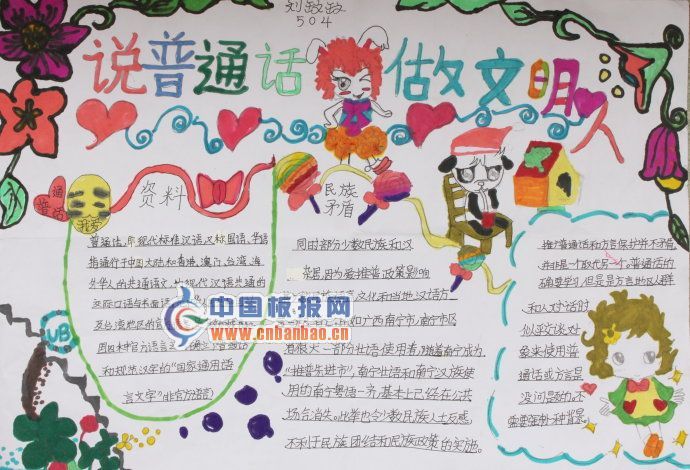 刘政政
504
说普通话 做文明人
普通话
我爱
资料
普通话,即现代标准汉语,又称国语、华语
指通行于中国大陆和香港、澳门、台湾、海
外华人的共通语文,为现代汉语共通的
交际口语与书面语
及台湾地区的官
规范汉字的"国家通用语
言文字"(非官方语言)
民族
矛盾
同时部分少数民族和汉
族居民因为爱推普政策影响
文化和当地汉语方
如广西南宁市,南宁市区
有很大一部分壮语使用者,随着南宁成为
"推普先进市",南宁壮语和南宁汉族使
用的南宁粤语一齐,基本上已经在公共
场合消失。此举也令少数民族人士反感,
不利于民族团结和民族政策的实施。
推广普通话和方言保护并不矛盾,
并非是一个取代另一个。普通话的
确要学习,但是是方言地区人群
和人对话时
似乎应该对
象来使用普
通话或方言是
没问题的,不
需要强制一种背景。
UB
中国板报网
www.cnbanbao.cn